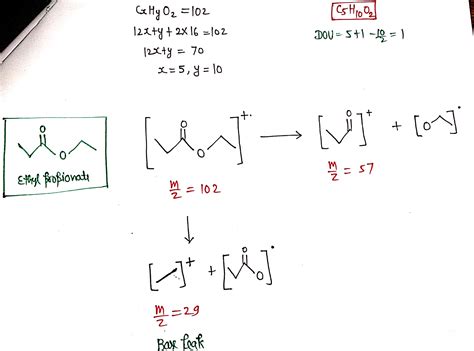 CxHyO2 = 102
12x+y + 2×16 = 102
12x+y = 70
x = 5, y = 10
C5H10O2
DOU = 5+1 - 10/2 = 1
O
O
Ethyl propionate
O
O
+.
m/z = 102
O
+
+
O
.
m/z = 57
+
+
O
O
.
m/z = 29
Base Peak